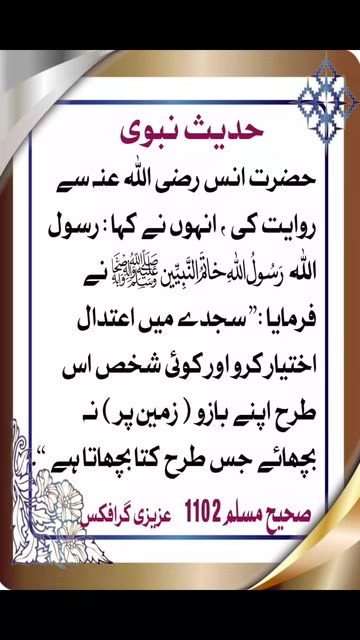 حدیث نبوی
حضرت انس رضی اللہ عنہ سے
روایت کی ، انہوں نے کہا : رسول
اللہ رَسُولُ اللہِ خَاتَمُ النَّبِیِّین ﷺ نے
فرمایا :” سجدے میں اعتدال
اختیار کرو اور کوئی شخص اس
طرح اپنے بازو ( زمین پر ) نہ
بچھائے جس طرح کتا بچھاتا ہے “.
صحیح مسلم 1102 عزیزی گرافکس